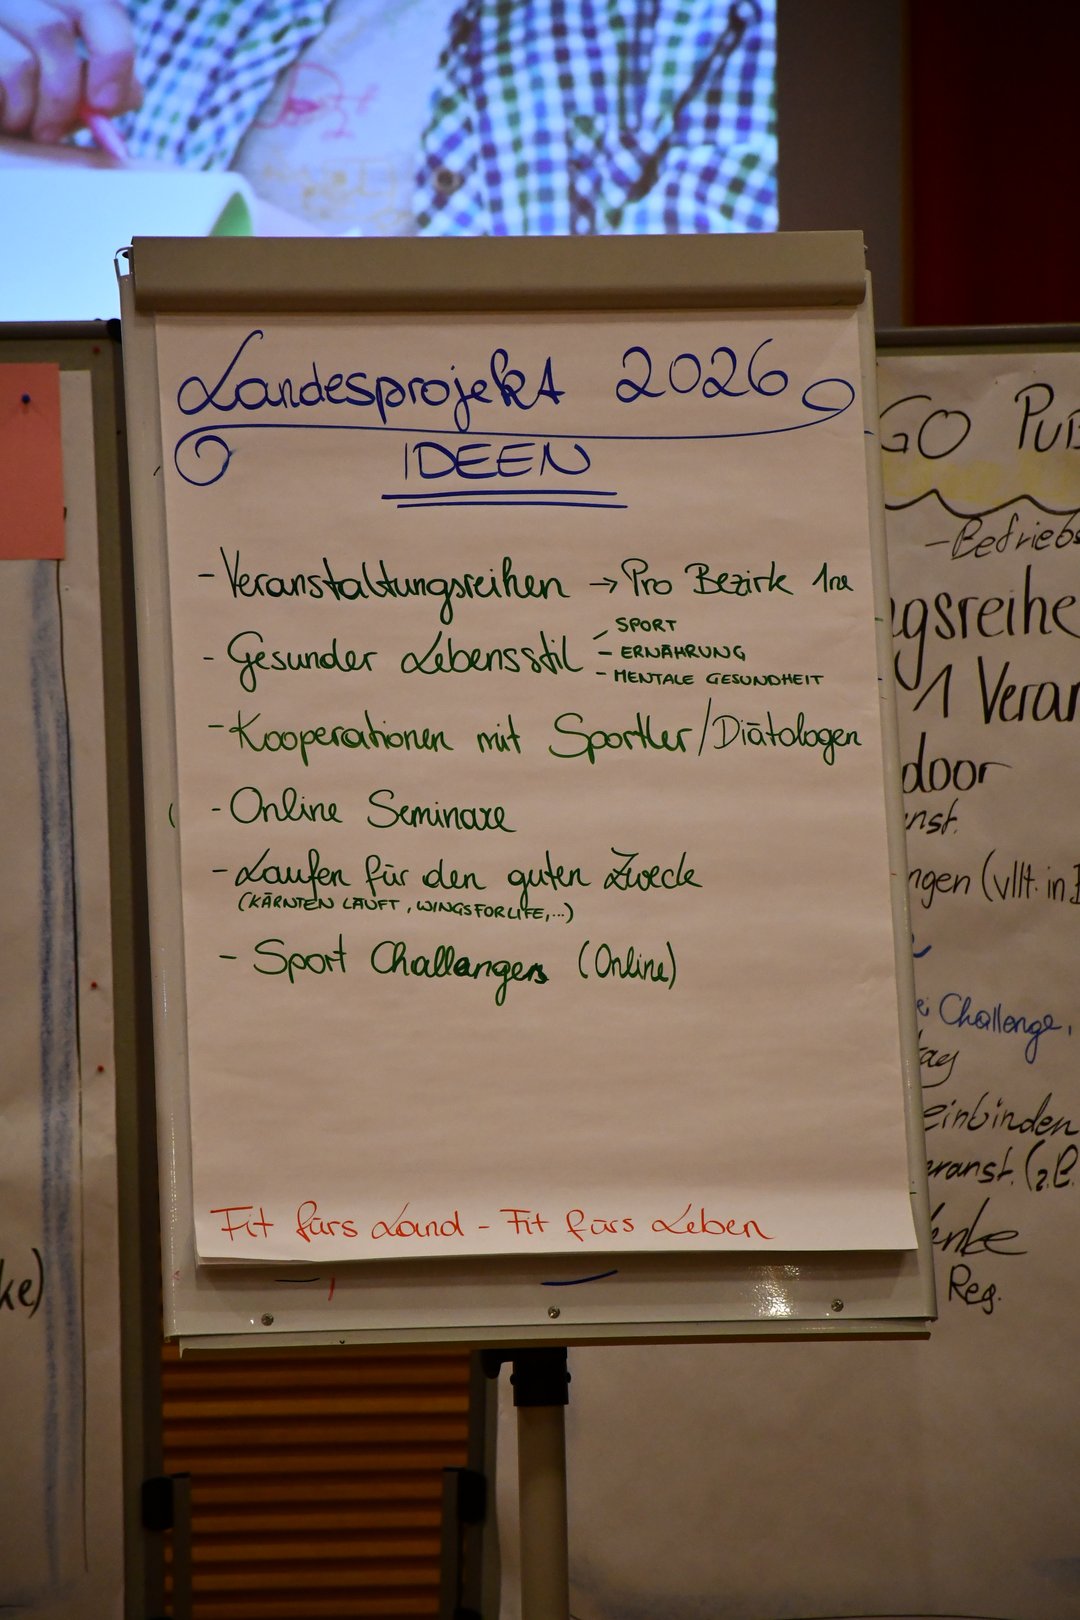 Landesprojekt 2026
IDEEN
- Veranstaltungsreihen → Pro Bezirk 1ne
- Gesunder Lebensstil
- SPORT
- ERNÄHRUNG
- MENTALE GESUNDHEIT
- Kooperationen mit Sportler/Diätologen
- Online Seminare
- Laufen für den guten Zweck
(KÄRNTEN LÄUFT, WINGSFORLIFE,...)
- Sport Challenges (Online)
Fit fürs Land - Fit fürs Leben
ke)
GO PUB
- Betriebs
gsreihe
1 Veran
door
nst.
ngen (vllt. in
Challenge,
tag
einbinden
eranst. (z.B.
enke
Reg.